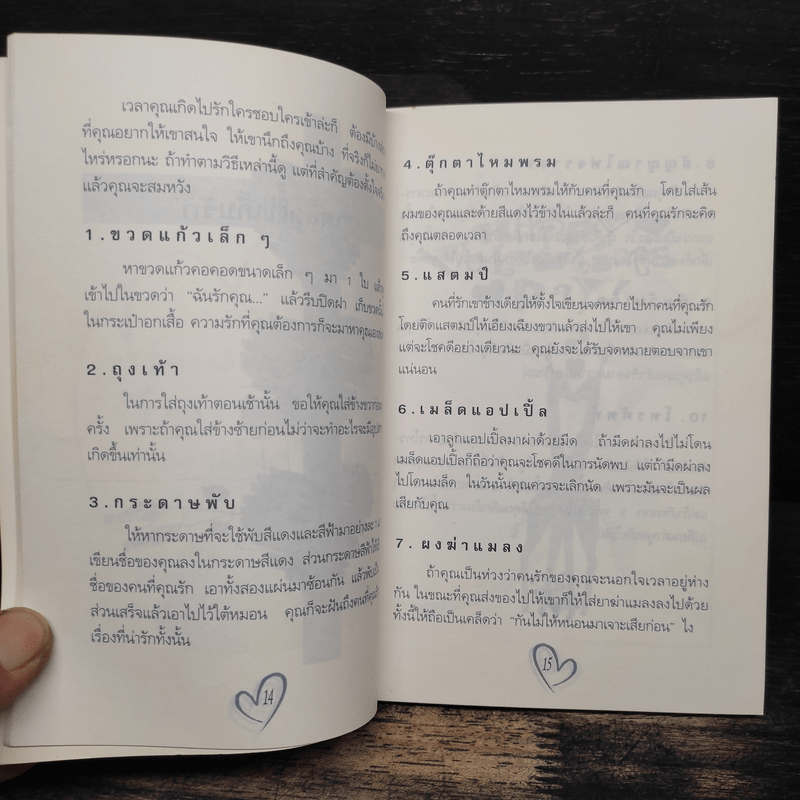 เวลาคุณเกิดไปรักใครชอบใครเข้าล่ะก็ ต้องมีบ้าง
ที่คุณอยากให้เขาสนใจ ให้เขานึกถึงคุณบ้าง ที่จริงก็ไม่ยาก
ไหร่หรอกนะ ถ้าทำตามวิธีเหล่านี้ดู แต่ที่สำคัญต้องตั้งใจ
แล้วคุณจะสมหวัง
1.ขวดแก้วเล็ก ๆ
หาขวดแก้วคอคอดขนาดเล็ก ๆ มา 1 ใบ แล้ว
เข้าไปในขวดว่า "ฉันรักคุณ..." แล้วรีบปิดฝา เก็บขวดนั้น
ในกระเป๋าอกเสื้อ ความรักที่คุณต้องการก็จะมาหาคุณเอง
2.ถุงเท้า
ในการใส่ถุงเท้าตอนเช้านั้น ขอให้คุณใส่ข้างขวาก่อน
ครั้ง เพราะถ้าคุณใส่ข้างซ้ายก่อนไม่ว่าจะทำอะไรจะมี
เกิดขึ้นเท่านั้น
3.กระดาษพับ
ให้หากระดาษที่จะใช้พับสีแดงและสีฟ้ามาอย่างละ
เขียนชื่อของคุณลงในกระดาษสีแดง ส่วนกระดาษสีฟ้า
ชื่อของคนที่คุณรัก เอาทั้งสองแผ่นมาซ้อนกัน แล้วพับ
ส่วนเสร็จแล้วเอาไปไว้ใต้หมอน คุณก็จะฝันถึงคนที่คุณ
เรื่องที่น่ารักทั้งนั้น
14
4.ตุ๊กตาไหมพรม
ถ้าคุณทำตุ๊กตาไหมพรมให้กับคนที่คุณรัก โดยใส่เส้น
ผมของคุณและด้ายสีแดงไว้ข้างในแล้วล่ะก็ คนที่คุณรักจะคิด
ถึงคุณตลอดเวลา
5.แสตมป์
คนที่รักเขาข้างเดียวให้ตั้งใจเขียนจดหมายไปหาคนที่คุณรัก
โดยติดแสตมป์ให้เอียงเฉียงขวาแล้วส่งไปให้เขา คุณไม่เพียง
แต่จะโชคดีอย่างเดียวนะ คุณยังจะได้รับจดหมายตอบจากเขา
แน่นอน
6.เมล็ดแอปเปิ้ล
เอาลูกแอปเปิ้ลมาผ่าด้วยมีด ถ้ามีดผ่าลงไปไม่โดน
เมล็ดแอปเปิ้ลก็ถือว่าคุณจะโชคดีในการนัดพบ แต่ถ้ามีดผ่าลง
ไปโดนเมล็ด ในวันนั้นคุณควรจะเลิกนัด เพราะมันจะเป็นผล
เสียกับคุณ
7. ผงฆ่าแมลง
ถ้าคุณเป็นห่วงว่าคนรักของคุณจะนอกใจเวลาอยู่ห่าง
กัน ในขณะที่คุณส่งของไปให้เขาก็ให้ใส่ยาฆ่าแมลงลงไปด้วย
ทั้งนี้ให้ถือเป็นเคล็ดว่า "กันไม่ให้หนอนมาเจาะเสียก่อน" ไง
15